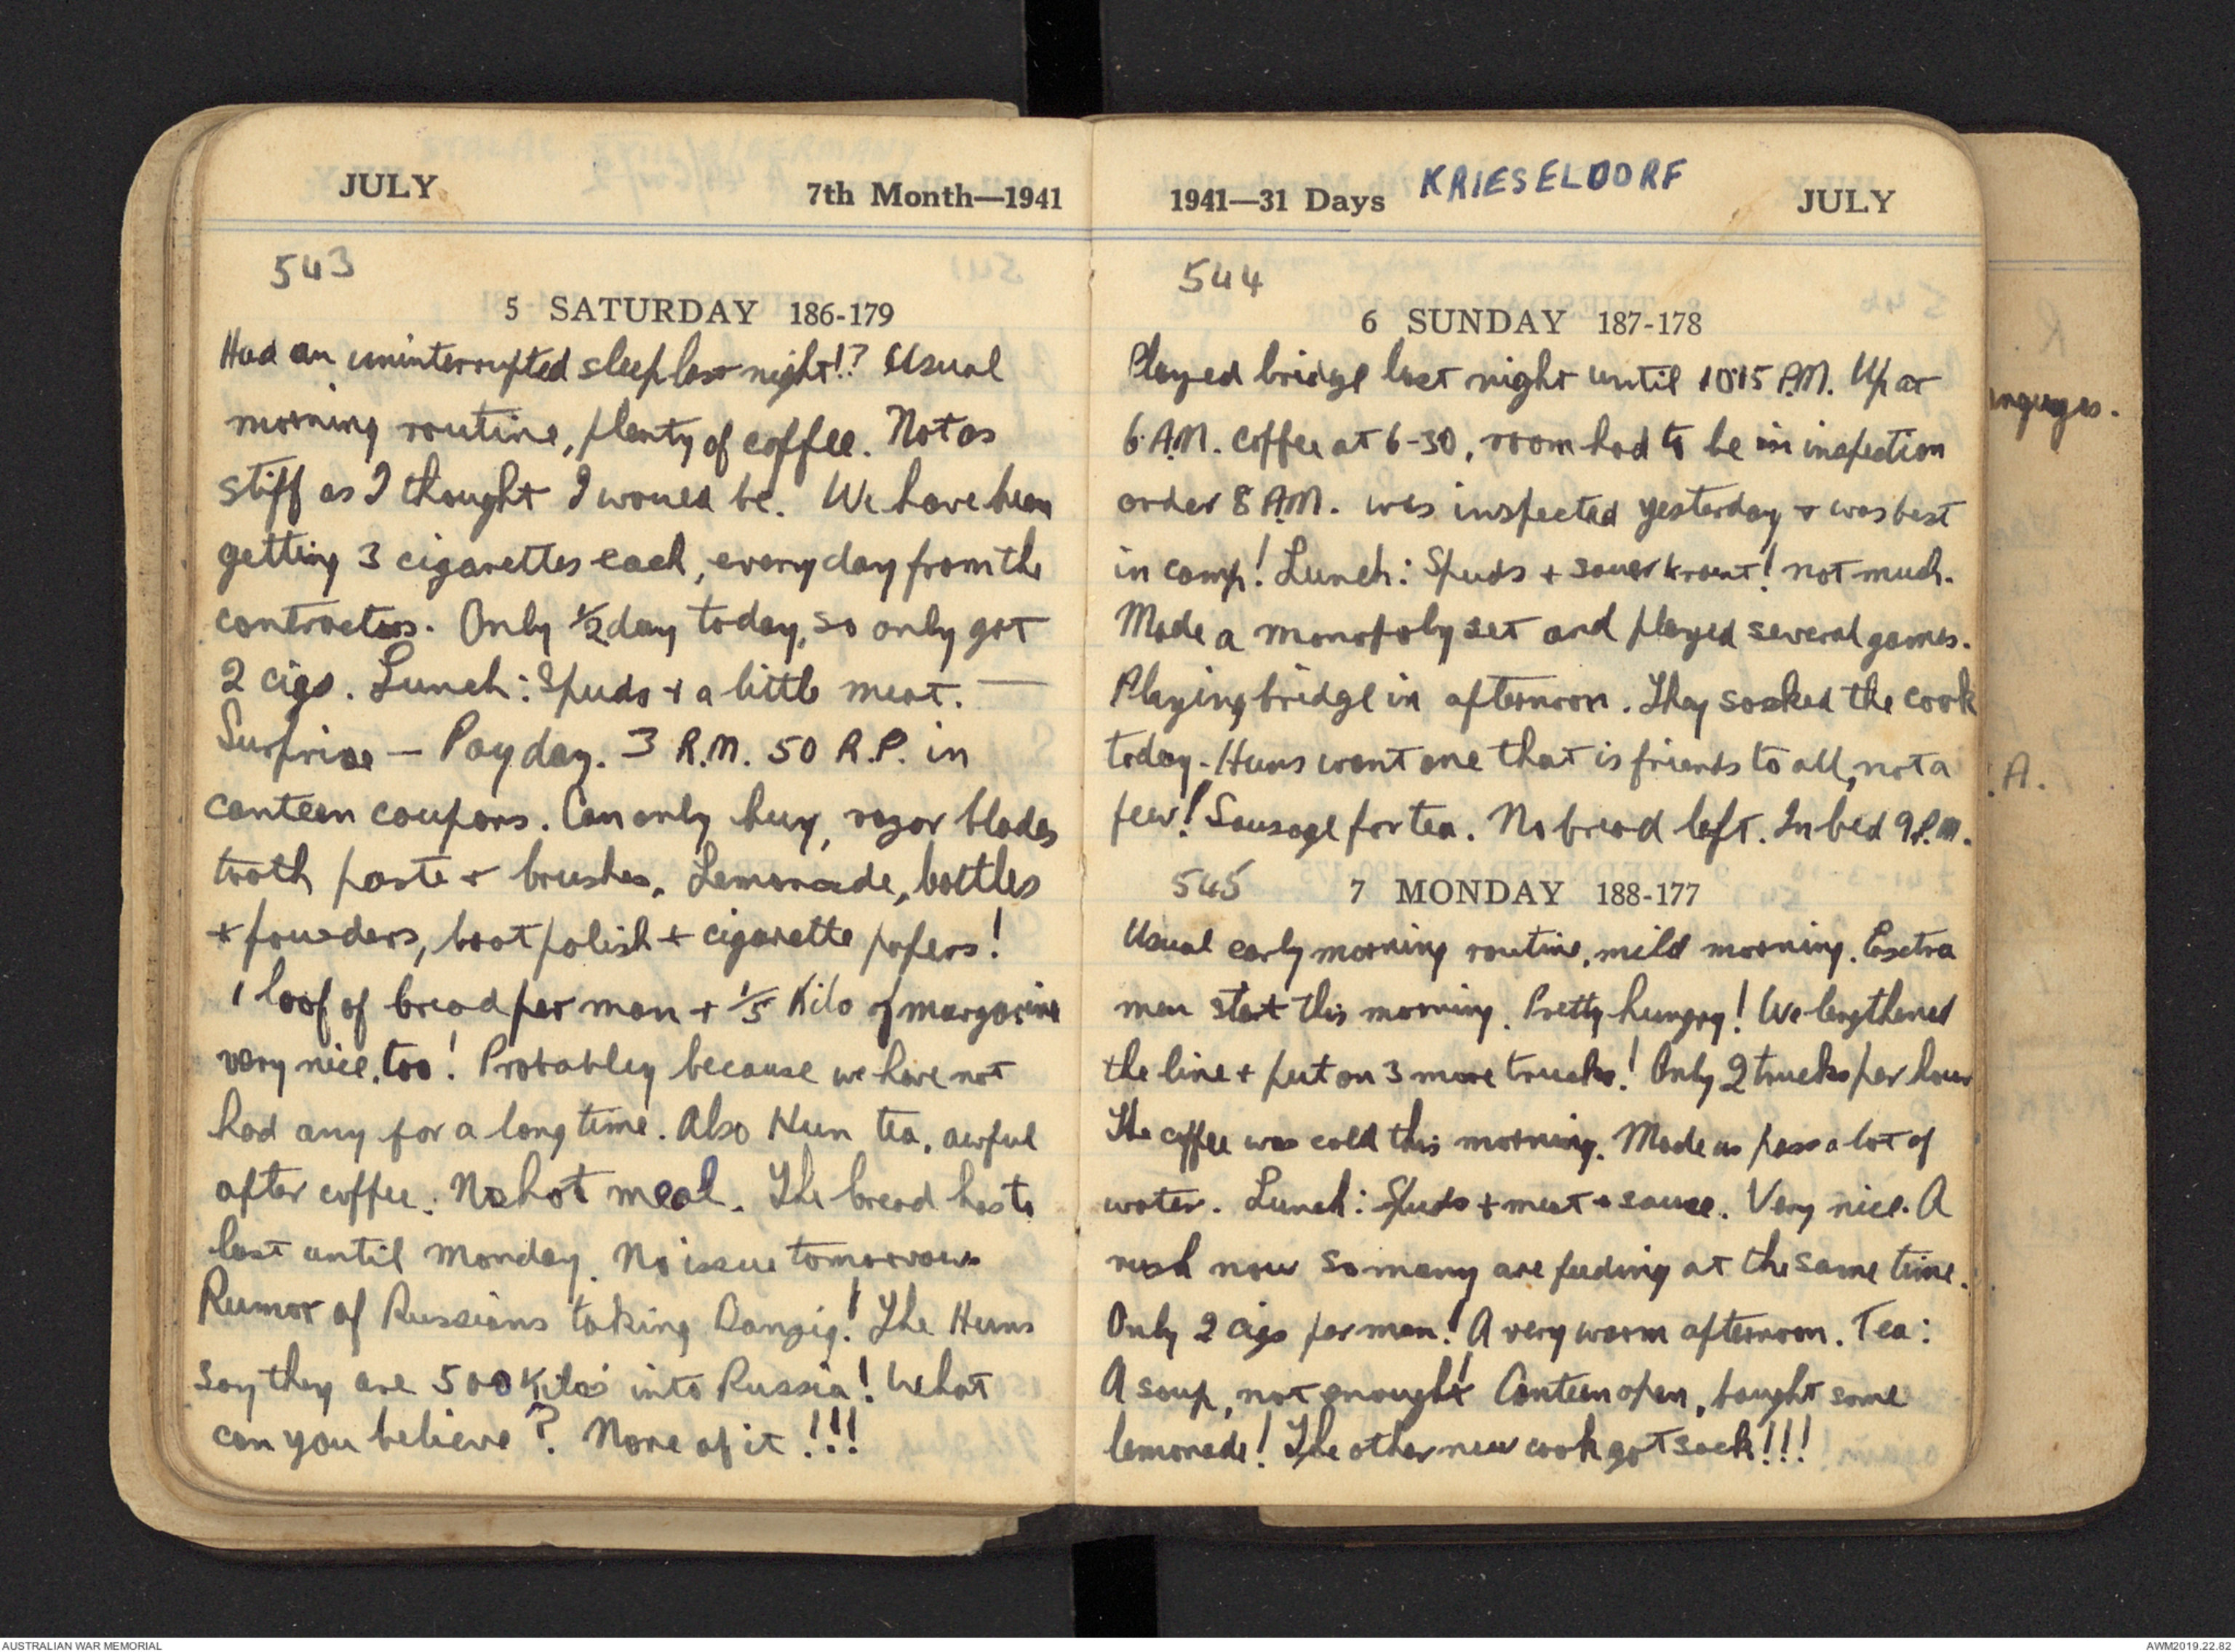 JULY 7th Month—1941
543
5 SATURDAY 186-179
Had an uninterrupted sleep last night!? Usual
morning routine, plenty of coffee. Not as
stiff as I thought I would be. We have been
getting 3 cigarettes each, every day from the
contractors. Only ½ day today, so only got
2 cigs. Lunch: Spuds + a little meat. —
Surprise — Pay day. 3 R.M. 50 R.P. in
canteen coupons. Can only buy, razor blades
tooth paste + brushes. Lemonade, bottles
+ powders, boot polish + cigarette papers!
1 loaf of bread per man + 1/5 Kilo of margarine
very nice, too! Probabley because we have not
had any for a long time. Also Hun tea, awful
after coffee. No hot meal. The bread has to
last until Monday. No issue tomorrow
Rumor of Russians taking Danzig! The Huns
say they are 500 Kilos into Russia! What
can you believe? None of it!!!
1941—31 Days KRIESELDORF JULY
544
6 SUNDAY 187-178
Played bridge last night until 10.15 P.M. Up at
6 A.M. coffee at 6-30, room had to be in inspection
order 8 A.M. was inspected yesterday + was best
in camp! Lunch: Spuds + sauerkraut! not much.
Made a monopoly set and played several games.
Playing bridge in afternoon. They sacked the cook
today. Huns want one that is friends to all, not a
few! Sausage for tea. No bread left. In bed 9 P.M.
545 7 MONDAY 188-177
Usual early morning routine, mild morning. Exetra
men start this morning. Pretty hungry! We lengthened
the line + put on 3 more trucks! Only 2 trucks per hour
The coffee was cold this morning. Made us pass a lot of
water. Lunch: Spuds + meat + sauce. Very nice. A
rush now so many are feeding at the same time.
Only 2 cigs per man! A very warm afternoon. Tea:
A soup, not enough! Canteen open, bought some
lemonade! The other new cook got sack!!!
A.
AUSTRALIAN WAR MEMORIAL AWM2019.22.82